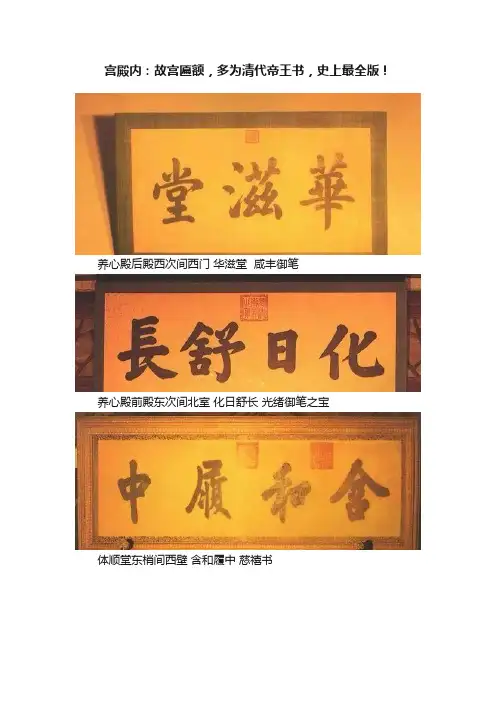 宫殿内：故宫匾额，多为清代帝王书，史上最全版！
華滋堂
养心殿后殿西次间西门 华滋堂 咸丰御笔
化日舒長
养心殿前殿东次间北室 化日舒长 光绪御笔之宝
含和履中
体顺堂东梢间西壁 含和履中 慈禧书